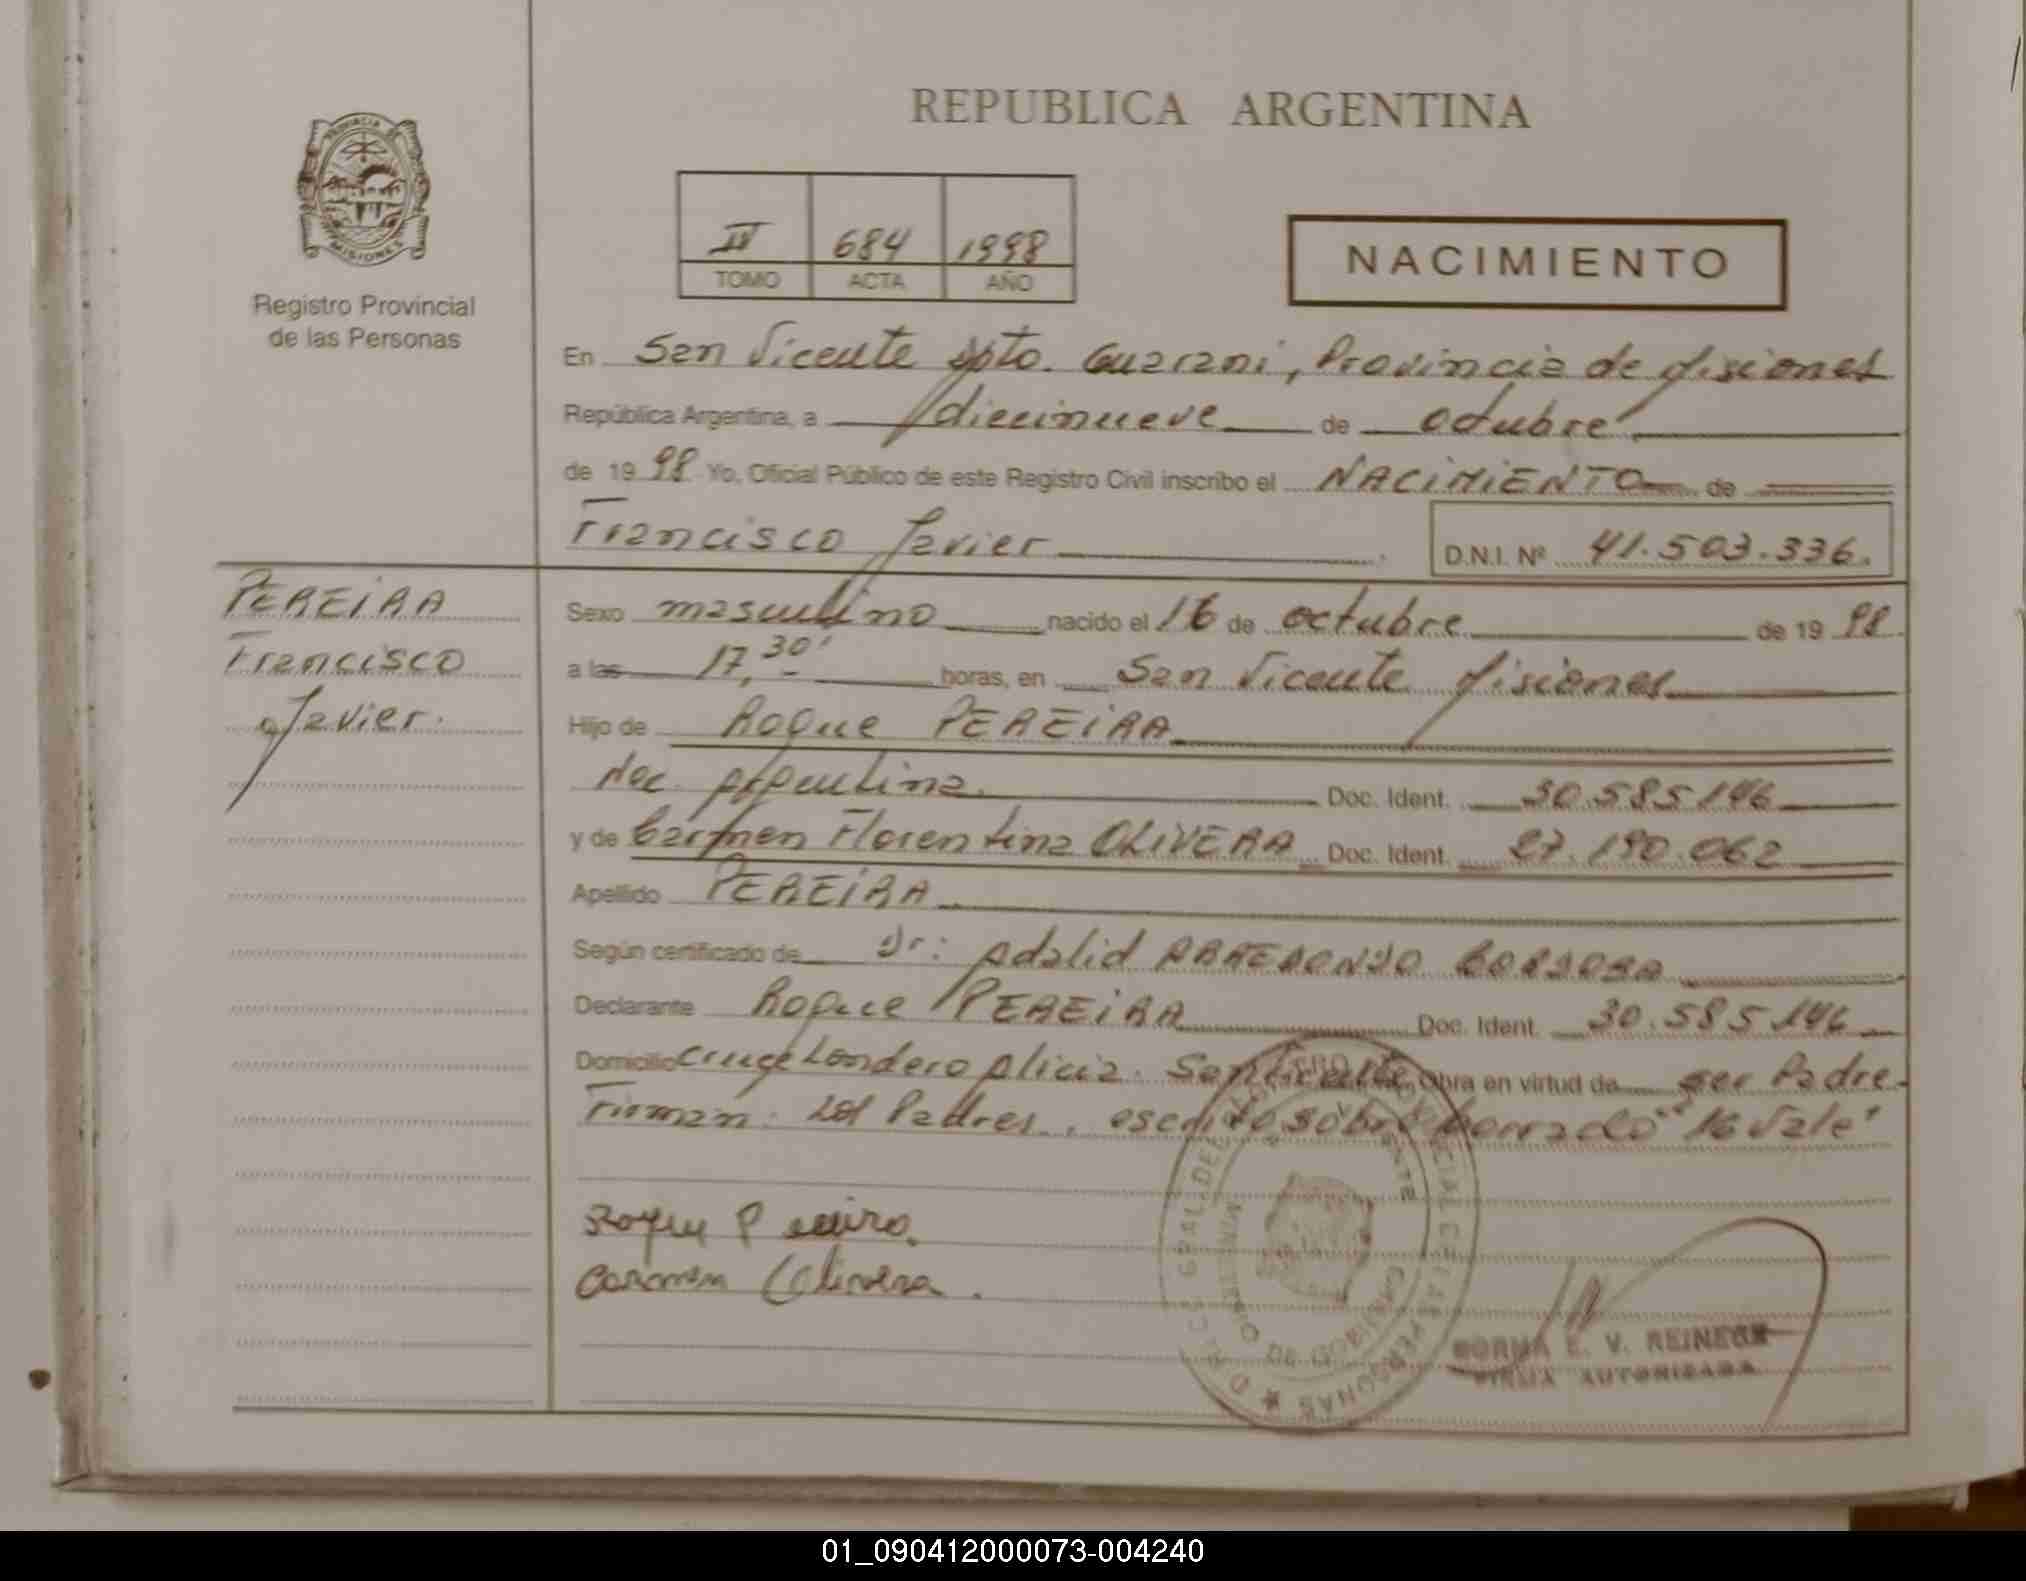 REPUBLICA ARGENTINA
PROVINCIA DE MISIONES
Registro Provincial
de las Personas
IV 684 1998
TOMO ACTA AÑO
NACIMIENTO
En San Vicente Dpto. Guarani, Provincia de Misiones
República Argentina, a diecinueve de octubre
de 1998 Yo, Oficial Público de este Registro Civil inscribo el NACIMIENTO de
Francisco Javier D.N.I. Nº 41.503.336.
PEREIRA
Francisco
Javier.
Sexo masculino nacido el 16 de octubre de 1998
a las 17,30' horas, en San Vicente Misiones
Hijo de Roque PEREIRA
Nac. Argentina. Doc. Ident. 30.585.146
y de Carmen Florentina OLIVERA Doc. Ident. 27.190.062
Apellido PEREIRA
Según certificado de Dr: Adalid ARREDONDO
Declarante Roque PEREIRA Doc. Ident. 30.585.146
Domicilio Cruce Londero Alicia. San Vicente Obra en virtud de ser Padre.
Firman: Los Padres. escrito sobre borrado "16 Vale"
Roque Pereira.
Carmen Olivera.
E. V. REINECK
FIRMA AUTORIZADA
01_090412000073-004240